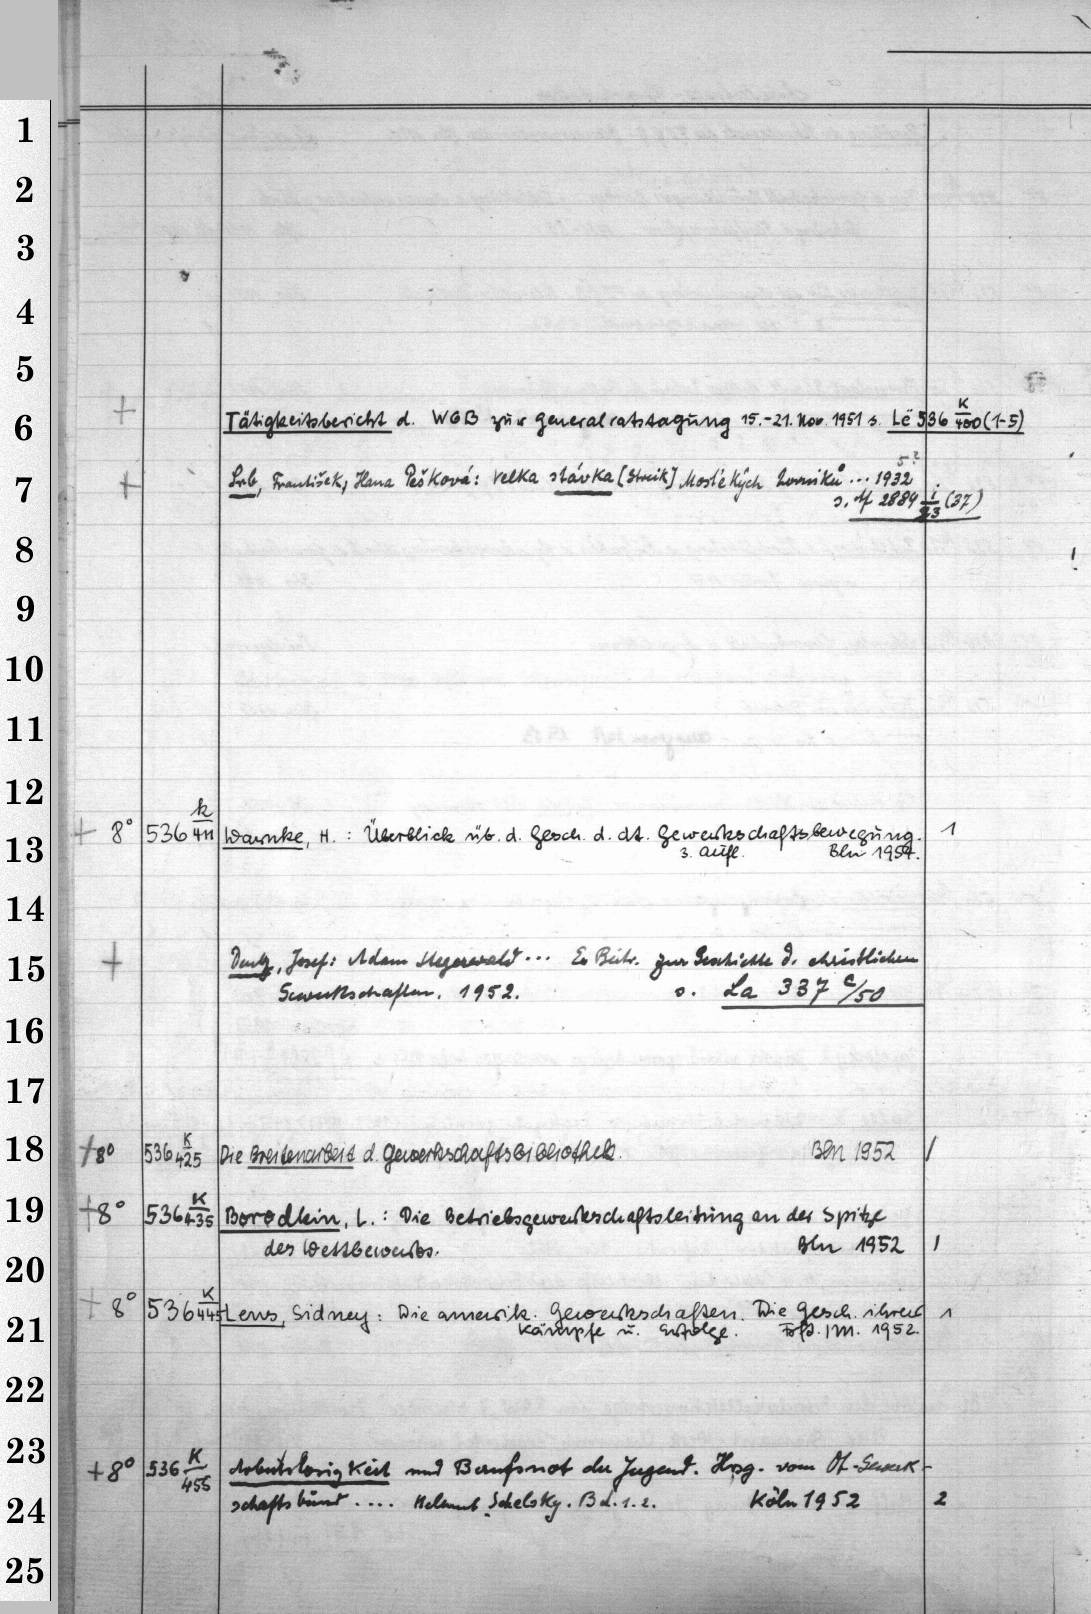 1
2
3
4
5
6
+ Tätigkeitsbericht d. WGB zur Generalratstagung 15.-21. Nov. 1951 s. Lë 536 K/400 (1-5)
7
+ Srb, František, Hana Pešková: Velka stávka [Streik] Mosteckých horníků ... 1932 5?
s. Af 2884 i/23 (37)
8
9
10
11
12
13
+ 8° 536 k/411 Warnke, H.: Überblick üb. d. Gesch. d. dt. Gewerkschaftsbewegung. 1
3. Aufl. Bln 1954.
14
15
+ Deutz, Josef: Adam Stegerwald ... E. Beitr. zur Geschichte d. christlichen
Gewerkschaften. 1952. s. La 337 c/50
16
17
18
+8° 536 K/425 Die Breitenarbeit d. Gewerkschaftsbibliothek. Bln 1952 1
19
+8° 536 K/435 Borodkin, L.: Die Betriebsgewerkschaftsleitung an der Spitze
des Wettbewerbs. Bln 1952 1
20
+ 8° 536 K/445 Lens, Sidney: Die amerik. Gewerkschaften. Die Gesch. ihrer 1
21
Kämpfe u. Erfolge. Frft. /M. 1952.
22
23
+8° 536 K/455 Arbeitslosigkeit und Berufsnot der Jugend. Hsg. vom Dt. Gewerk-
24
schaftsbund .... Helmut Schelsky. Bd. 1. 2. Köln 1952 2
25